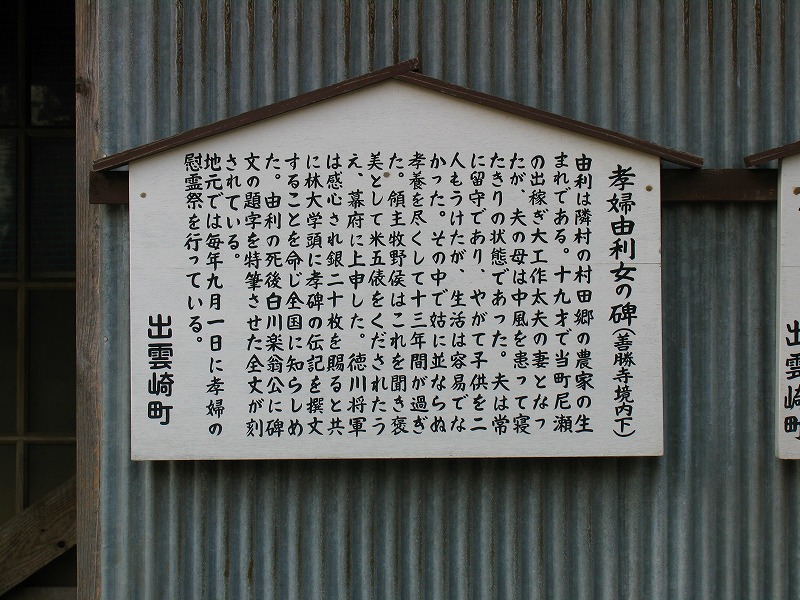 孝婦由利女の碑(善勝寺境内下)
由利は隣村の村田郷の農家の生
まれである。十九才で当町尼瀬
の出稼ぎ大工作太夫の妻となっ
たが、夫の母は中風を患って寝
たきりの状態であった。夫は常
に留守であり、やがて子供を二
人もうけたが、生活は容易でな
かった。その中で姑に並ならぬ
孝養を尽くして十三年間が過ぎ
た。領主牧野侯はこれを聞き褒
美として米五俵をくだされたう
え、幕府に上申した。徳川将軍
は感心され銀二十枚を賜ると共
に林大学頭に孝碑の伝記を撰文
することを命じ全国に知らしめ
た。由利の死後白川楽翁公に碑
文の題字を特筆させた全文が刻
されている。
地元では毎年九月一日に孝婦の
慰霊祭を行っている。
出雲崎町
出雲崎町